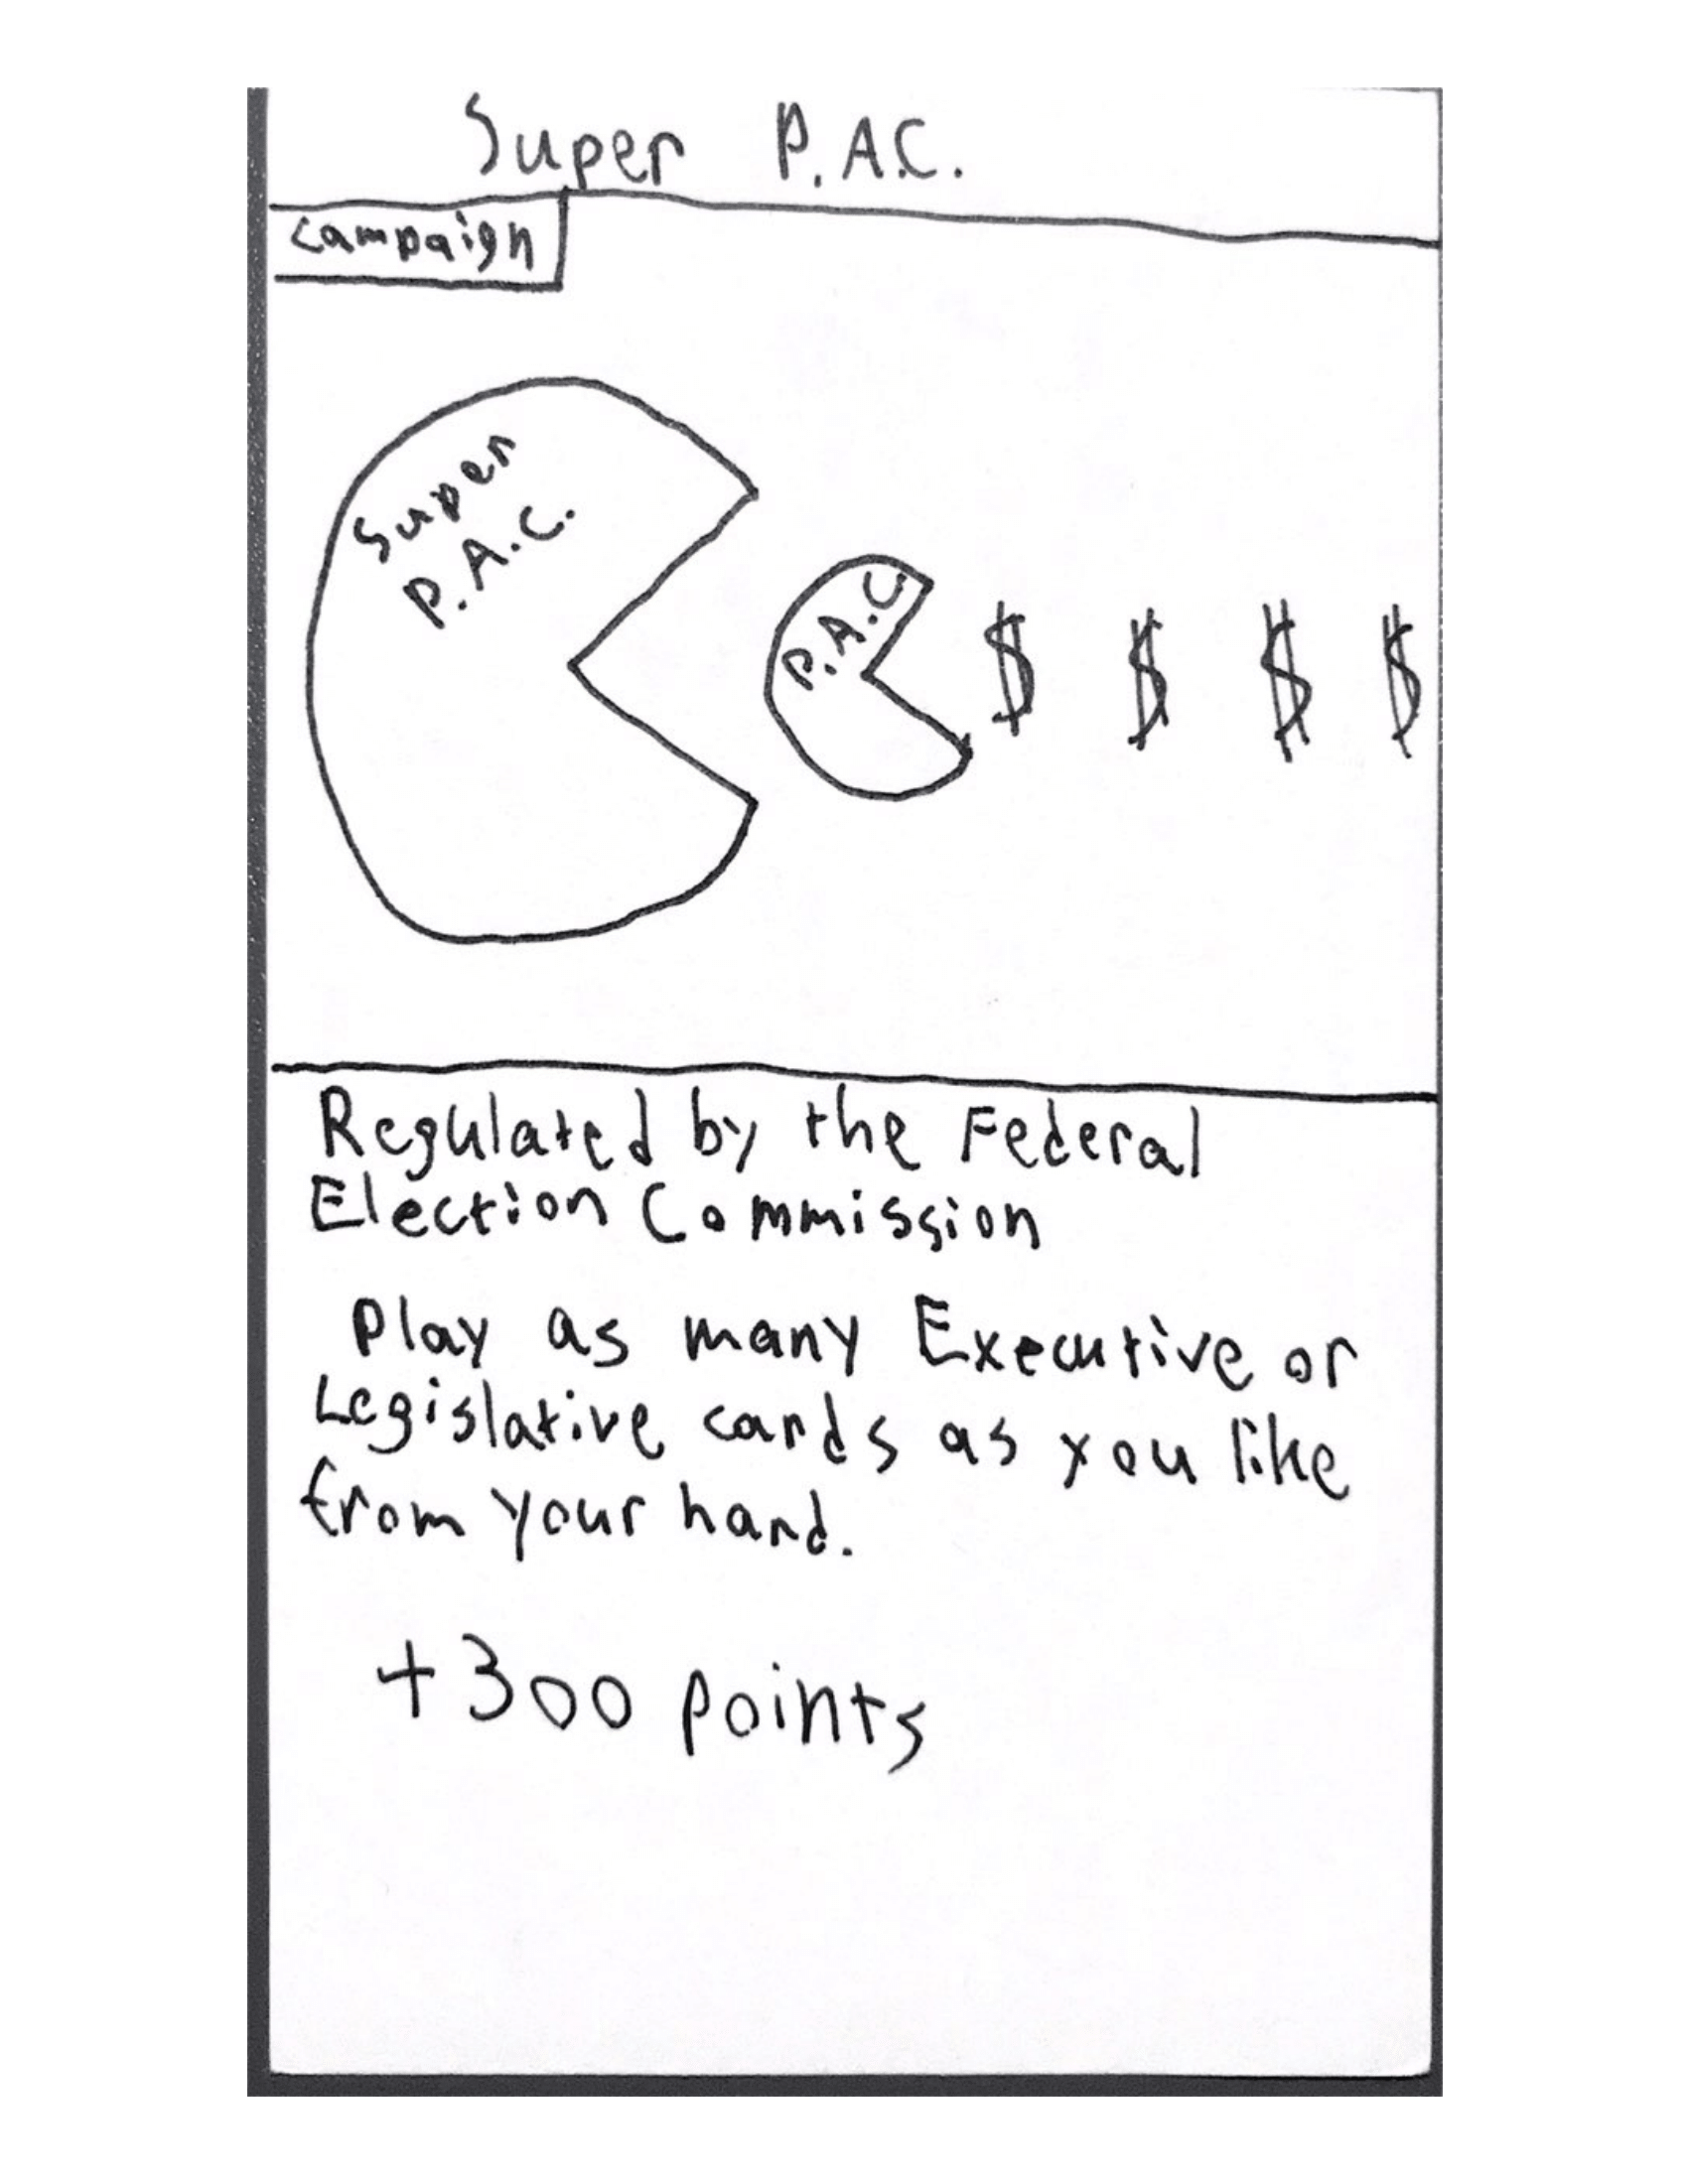 Super P.A.C.
Campaign
Super
P.A.C.
P.A.C
$ $ $ $
Regulated by the Federal
Election Commission
Play as many Executive or
Legislative cards as you like
from your hand.
+300 points